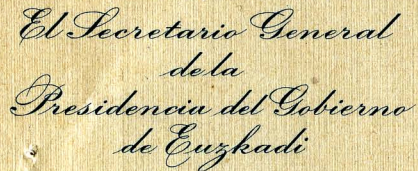 El Secretario General
de la
Presidencia del Gobierno
de Euzkadi